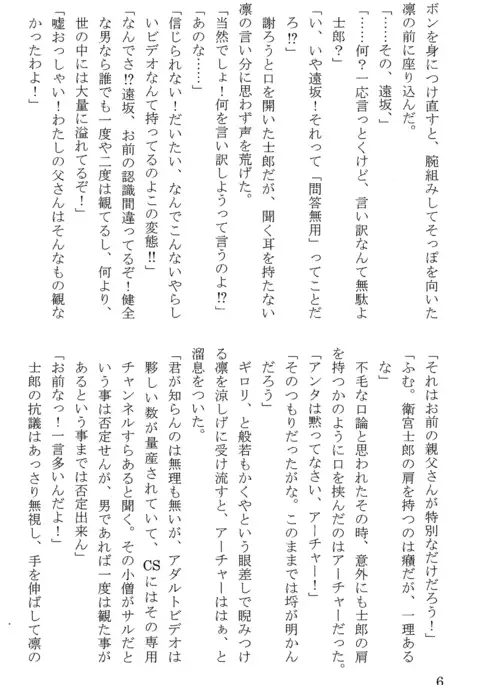 ボンを身につけ直すと、腕組みしてそっぽを向いた
凛の前に座り込んだ。
「……その、遠坂、」
「……何？一応言っとくけど、言い訳なんて無駄よ
士郎？」
「い、いや遠坂！それって「問答無用」ってことだ
ろ!?」
謝ろうと口を開いた士郎だが、聞く耳を持たない
凛の言い分に思わず声を荒げた。
「当然でしょ！何を言い訳しようって言うのよ!?」
「あのな……」
「信じられない！だいたい、なんでこんないやらし
いビデオなんて持ってるのよこの変態!!」
「なんでさ!?遠坂、お前の認識間違ってるぞ！健全
な男なら誰でも一度や二度は観てるし、何より、
世の中には大量に溢れてるぞ！」
「嘘おっしゃい！わたしの父さんはそんなもの観な
かったわよ！」
「それはお前の親父さんが特別なだけだろう！」
「ふむ。衛宮士郎の肩を持つのは癪だが、一理ある
な」
不毛な口論と思われたその時、意外にも士郎の肩
を持つかのように口を挟んだのはアーチャーだった。
「アンタは黙ってなさい、アーチャー！」
「そのつもりだったがな。このままでは埒が明かん
だろう」
ギロリ、と般若もかくやという眼差しで睨みつけ
る凛を涼しげに受け流すと、アーチャーははぁ、と
溜息をついた。
「君が知らんのは無理も無いが、アダルトビデオは
夥しい数が量産されていて、CSにはその専用
チャンネルすらあると聞く。その小僧がサルだと
いう事は否定せんが、男であれば一度は観た事が
あるという事までは否定出来ん」
「お前なっ！一言多いんだよ！」
士郎の抗議はあっさり無視し、手を伸ばして凛の
6